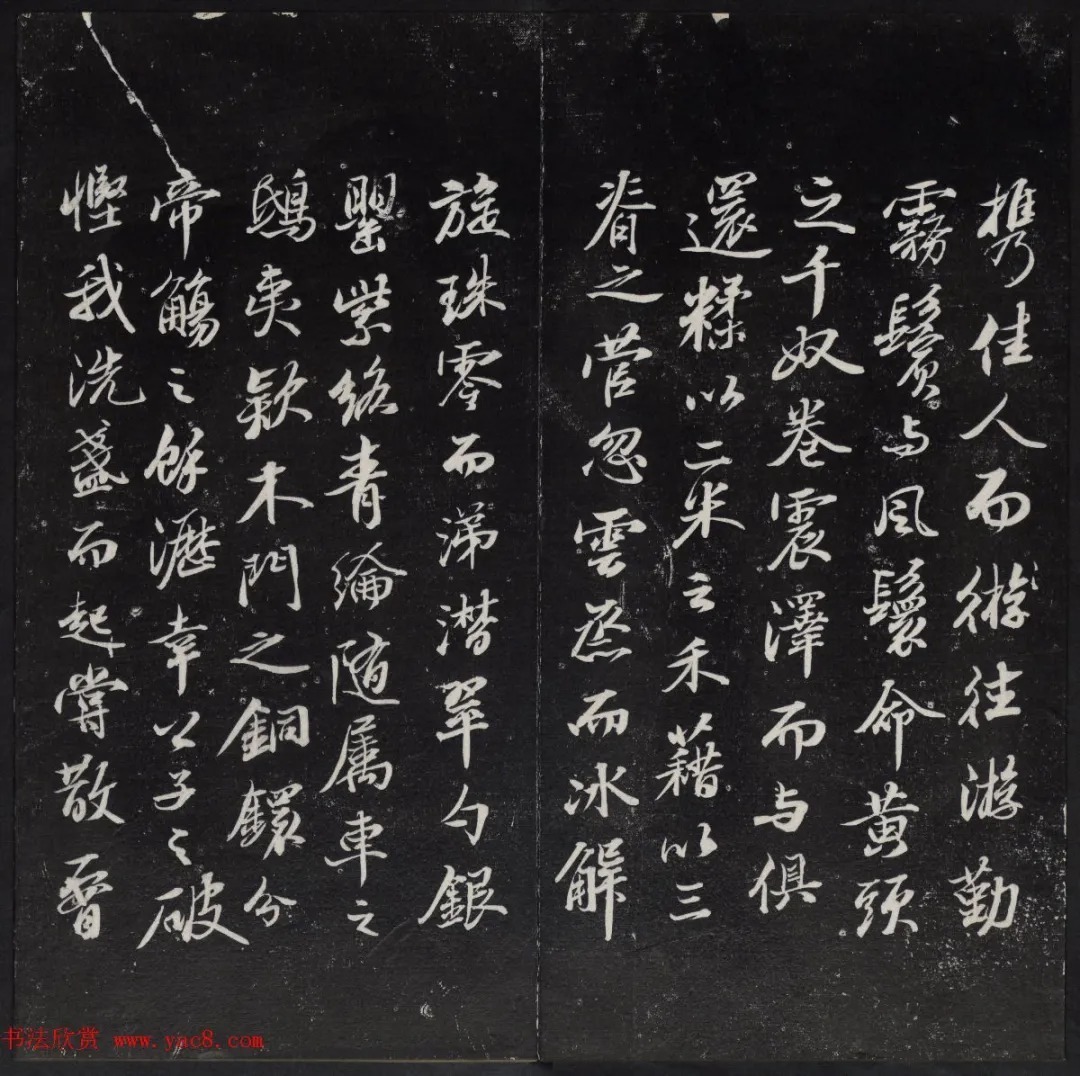 携佳人而遊往游勤
霧鬢与風鬟命黄頭
之千奴卷震澤而与俱
還糅以二米之禾藉以三
脊之菅忽雲蒸而冰解
旋珠零而涕潸翠勺銀
罌紫絡青綸随属車之
鴟夷款木門之銅鐶分
帝觴之餘瀝幸公子之破
慳我洗盞而起嘗散
书法欣赏 www.yac8.com